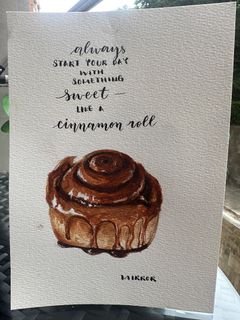 always
START YOUR DAY
WITH
SOMETHING
sweet —
LIKE A
cinnamon roll
MIRROR